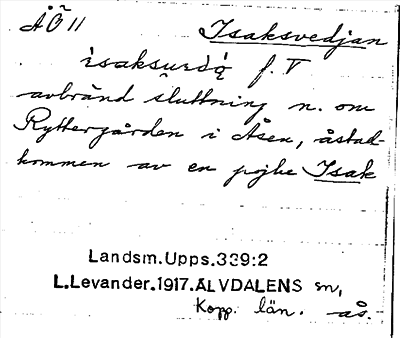 ÅÖ 11 Isaksvedjan
f. V
avbränd sluttning n. om
Ryttergården i Åsen, åstad-
kommen av en pojke Isak
Landsm.Upps.339:2
L.Levander.1917.ÄLVDALENS sn,
Kopp. län. ås.